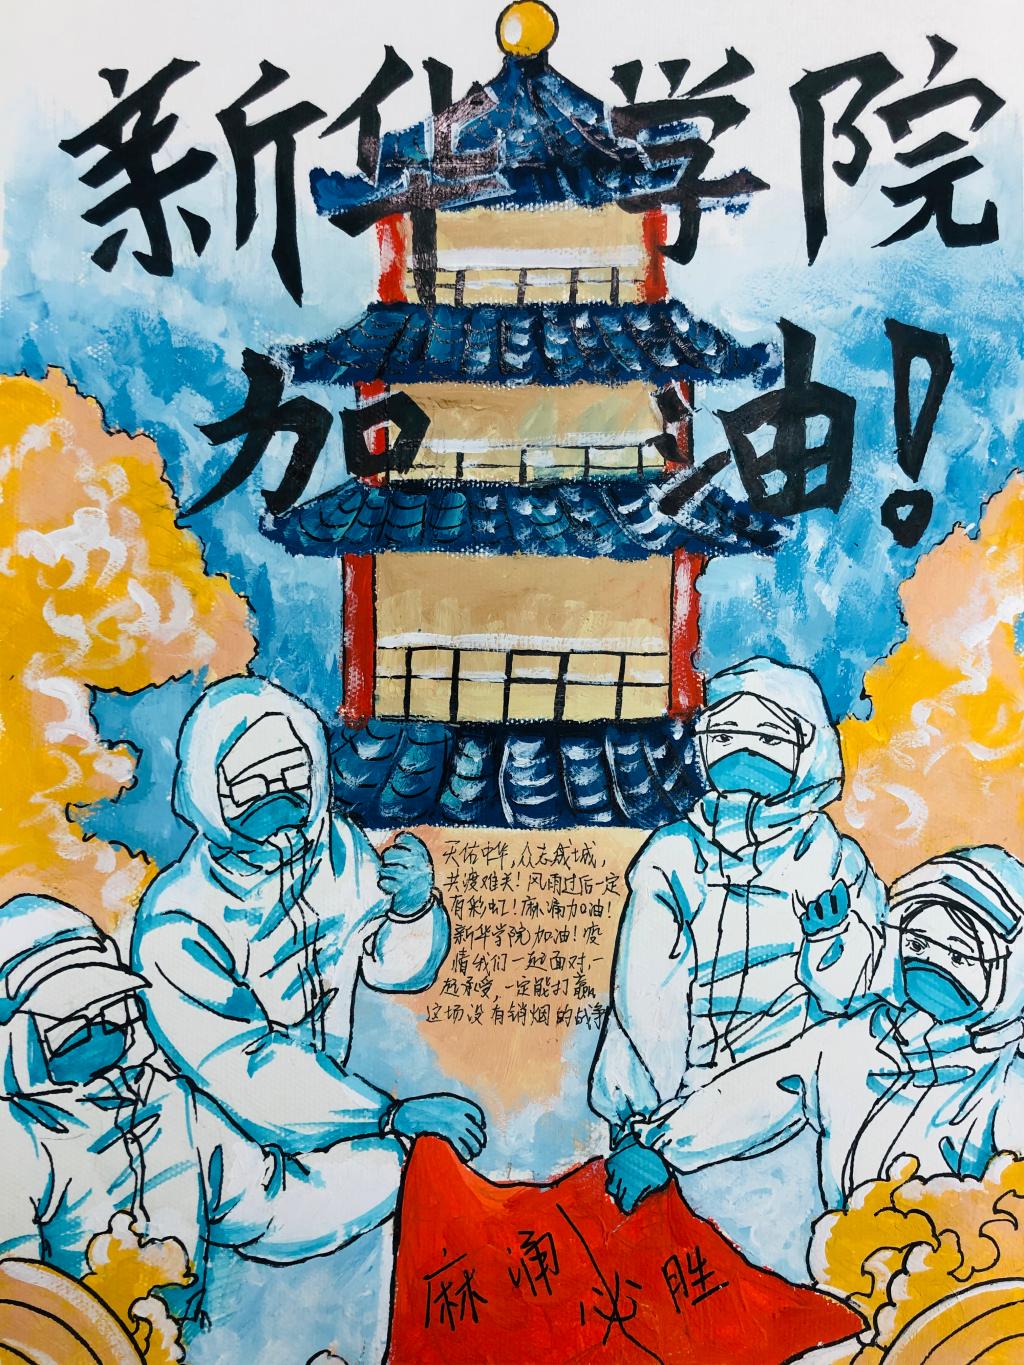 新华学院
加油!
天佑中华,众志成城,
共渡难关!风雨过后一定
有彩虹!麻涌加油!
新华学院加油!疫
情我们一起面对,一
起承受,一定能打赢
这场没有销烟的战争
麻涌必胜